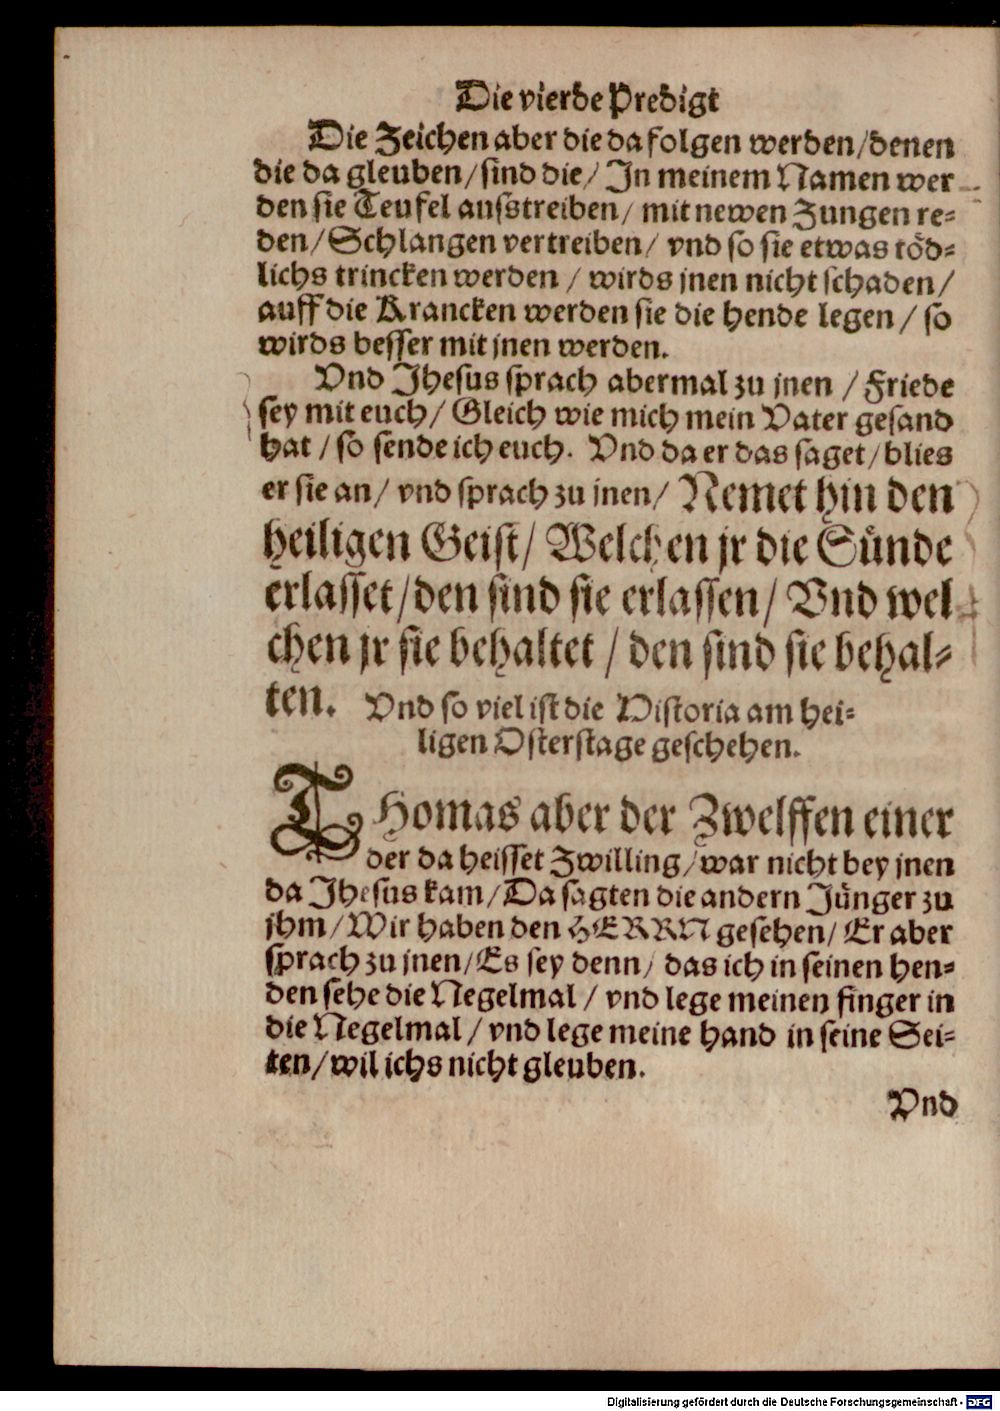 Die vierde Predigt
Die Zeichen aber die da folgen werden/denen
die da gleuben/sind die/ In meinem Namen wer
den sie Teufel ausstreiben/ mit newen Zungen re=
den/Schlangen vertreiben/ vnd so sie etwas töd=
lichs trincken werden / wirds jnen nicht schaden/
auff die Krancken werden sie die hende legen / so
wirds besser mit jnen werden.
Vnd Jhesus sprach abermal zu jnen / Friede
sey mit euch/ Gleich wie mich mein Vater gesand
hat / so sende ich euch. Vnd da er das saget/blies
er sie an/ vnd sprach zu jnen/ Nemet hin den
heiligen Geist/ Welchen jr die Sünde
erlasset/den sind sie erlassen/ Vnd wel
chen jr sie behaltet / den sind sie behal=
ten. Vnd so viel ist die Historia am hei=
ligen Osterstage geschehen.
THomas aber der Zwelffen einer
der da heisset Zwilling/war nicht bey jnen
da Jhesus kam/Da sagten die andern Jünger zu
jhm/Wir haben den HERRN gesehen/ Er aber
sprach zu jnen/Es sey denn/ das ich in seinen hen=
den sehe die Negelmal / vnd lege meinen finger in
die Negelmal / vnd lege meine hand in seine Sei=
ten/wil ichs nicht gleuben.
Vnd
Digitalisierung gefördert durch die Deutsche Forschungsgemeinschaft - DFG